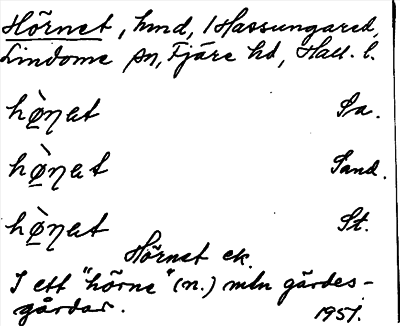 Hörnet, hmd, i Hassungared,
Lindome sn, Fjäre hd, Hall. l.
hø̀ṇat Sa.
hø̀ṇat Sand.
hø̀ṇat St.
Hörnet ek.
I ett "hörne" (n.) mln gärdes-
gårdar. 1951.